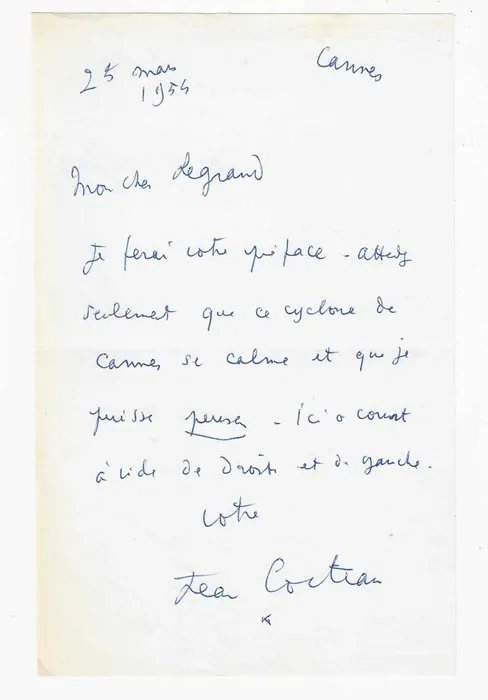 25 mars Cannes
1954
Mon cher Legrand
Je ferai votre préface - attendez
seulement que ce cyclone de
Cannes se calme et que je
puisse penser - Ici on court
à vide de droite et de gauche.
votre
Jean Cocteau
*